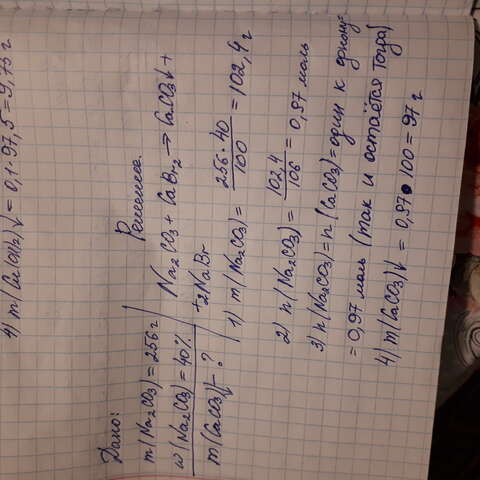 4) m(Cu(OH)₂)↓ = 0,1·97,5 = 9,75 г
Дано:
m(Na₂CO₃) = 256 г
ω(Na₂CO₃) = 40%
m(CaCO₃)↓ - ?
Решение.
Na₂CO₃ + CaBr₂ → CaCO₃↓ +
+ 2NaBr
1) m(Na₂CO₃) = 256·40/100 = 102,4 г
2) n(Na₂CO₃) = 102,4/106 = 0,97 моль
3) n(Na₂CO₃) = n(CaCO₃) = один к одному =
= 0,97 моль (так и остаётся тогда)
4) m(CaCO₃)↓ = 0,97·100 = 97 г